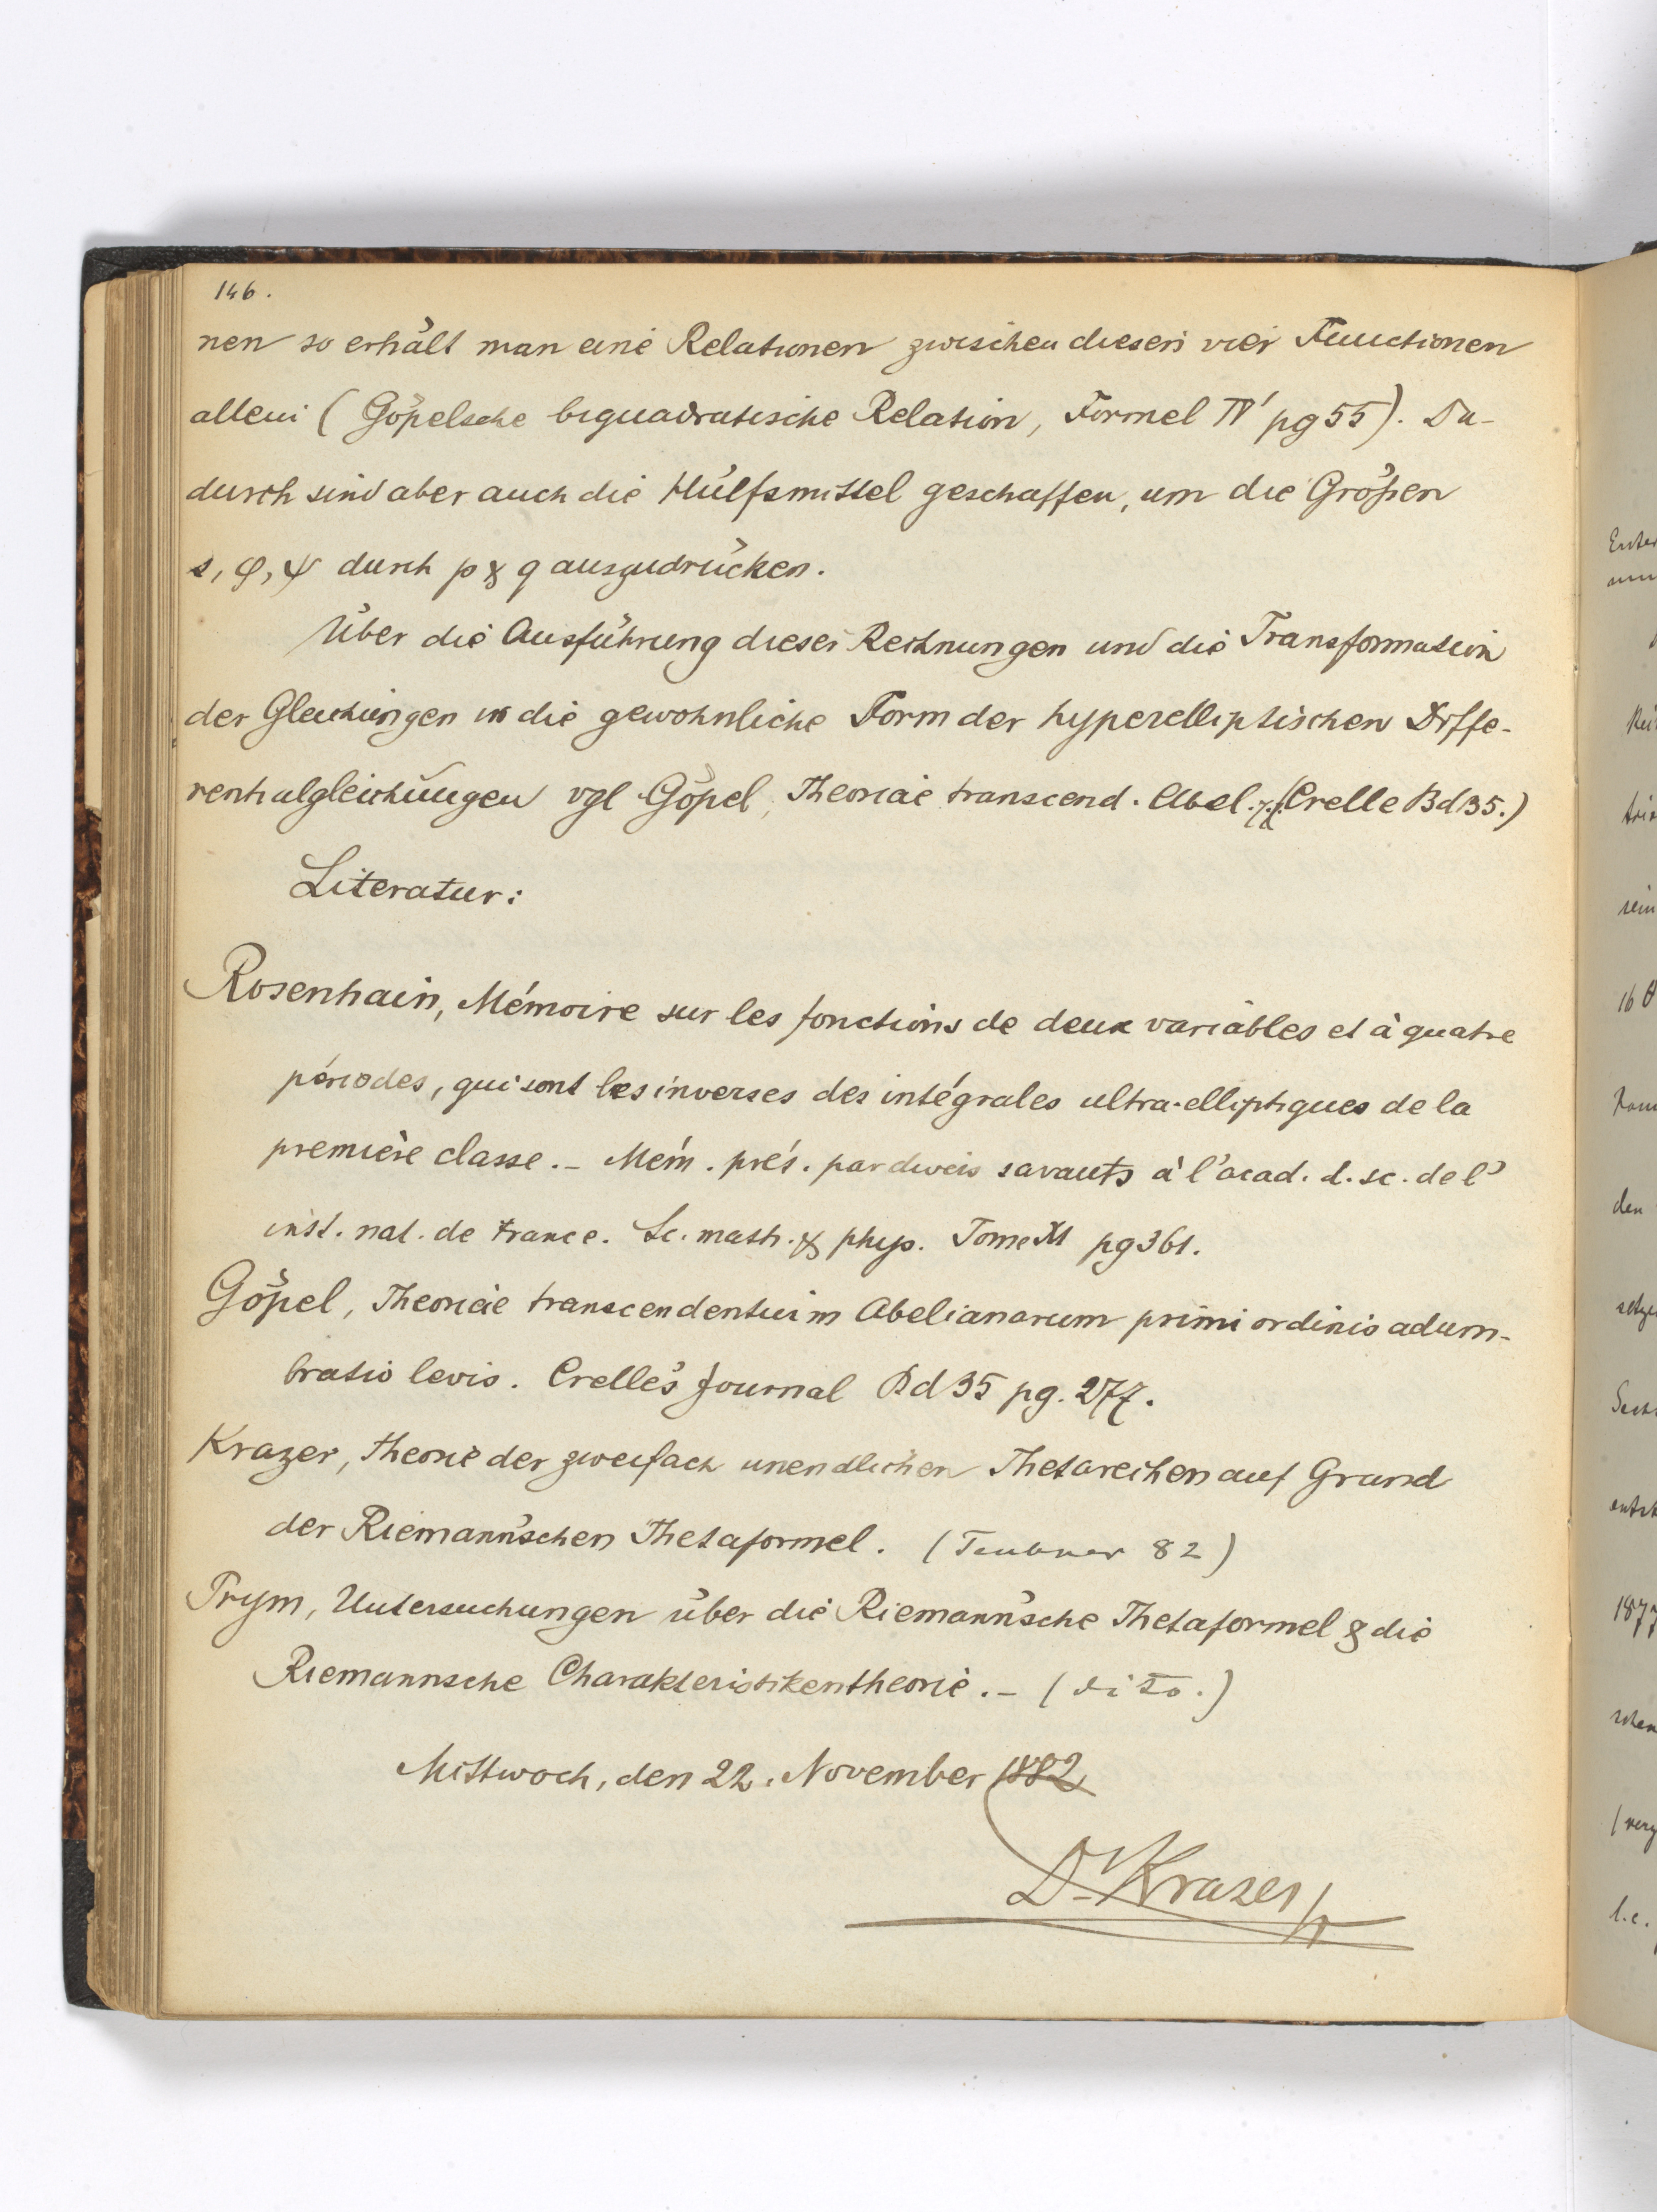 146.
nen so erhält man eine Relationen zwischen diesen vier Functionen
allein (Göpelsche biquadratische Relation, Formel IV' pg 55). Da-
durch sind aber auch die Hülfsmittel geschaffen, um die Größen
s, φ, ψ durch p & q auszudrücken.
Über die Ausführung dieser Rechnungen und die Transformation
der Gleichungen in die gewöhnliche Form der hyperelliptischen Diffe-
rentialgleichungen vgl Göpel, Theoriae transcend. Abel. (Crelle Bd 35.)
Literatur:
Rosenhain, Mémoire sur les fonctions de deux variables et à quatre
périodes, qui sont les inverses des intégrales ultra-elliptiques de la
première classe. – Mém. prés. par divers savants à l'acad. d. sc. de l'
inst. nat. de France. Sc. math. & phys. Tome XI pg 361.
Göpel, Theoriae transcendentium Abelianarum primi ordinis adum-
bratio levis. Crelle's Journal Bd 35 pg. 277.
Krazer, Theorie der zweifach unendlichen Thetareihen auf Grund
der Riemann'schen Thetaformel. (Teubner 82)
Prym, Untersuchungen über die Riemann'sche Thetaformel & die
Riemannsche Charakteristikentheorie. – (dito.)
Mittwoch, den 22. November 1882
Dr Krazer